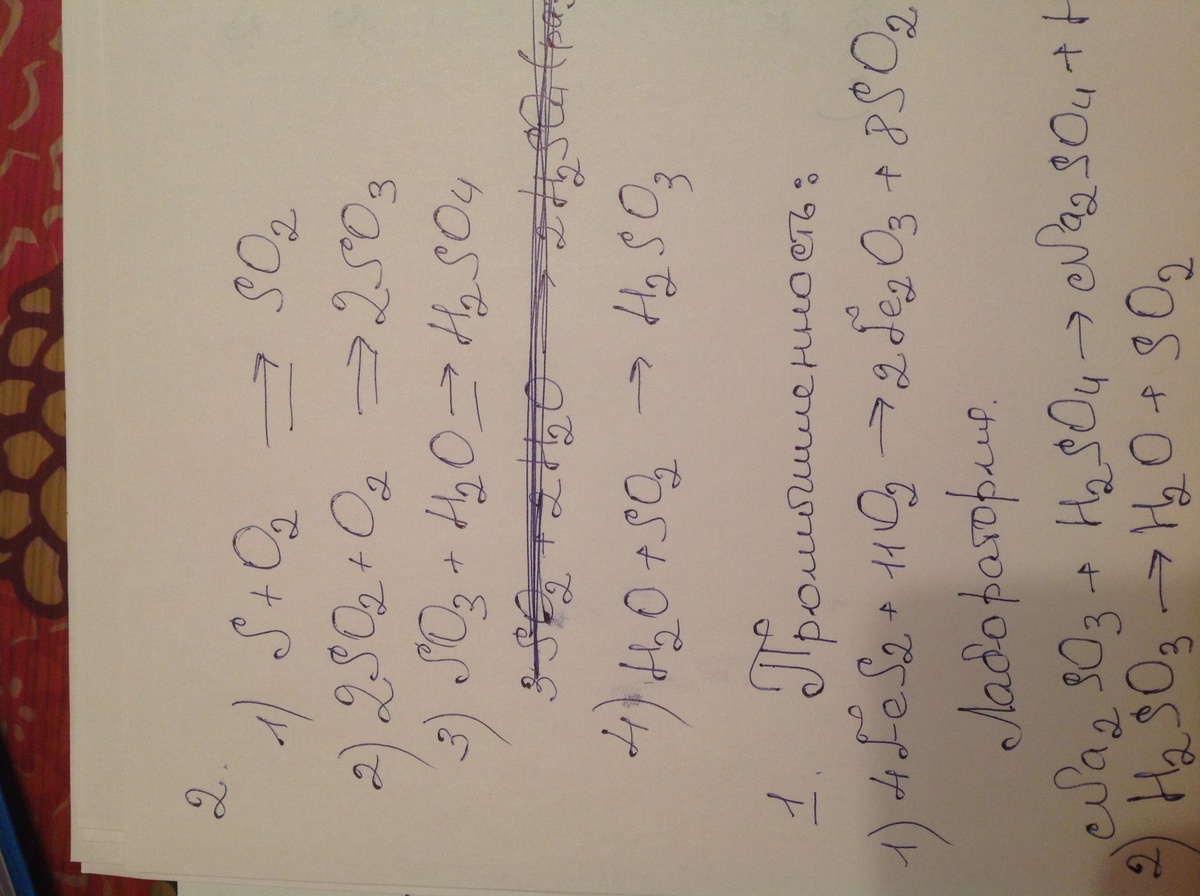 2.
1) S + O2 ⇒ SO2
2) 2SO2 + O2 ⇒ 2SO3
3) SO3 + H2O ⇒ H2SO4
3 SO2 + 2H2O → 2H2SO4 (
4) H2O + SO2 → H2SO3
1. Промышленность:
1) 4FeS2 + 11O2 → 2Fe2O3 + 8SO2
Лаборатория.
Na2SO3 + H2SO4 → Na2SO4 + H
2) H2SO3 → H2O + SO2